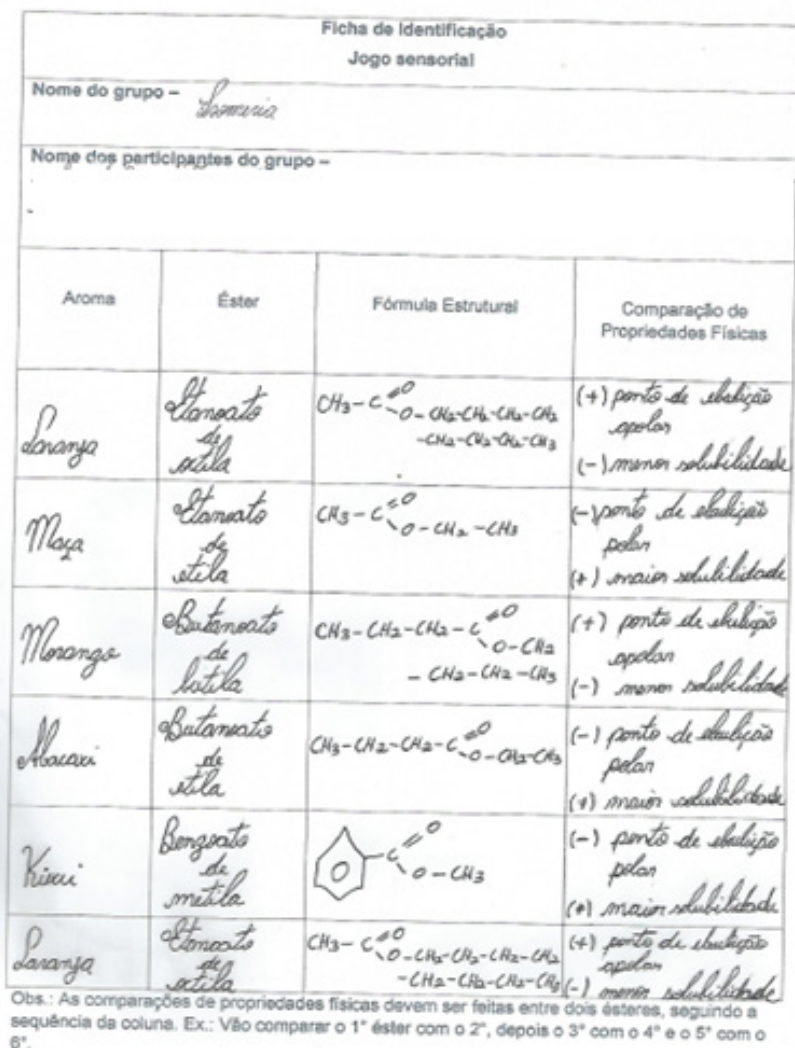 Ficha de Identificação
Jogo sensorial
Nome do grupo – Isomeria
Nome dos participantes do grupo –
-
Aroma
Éster
Fórmula Estrutural
Comparação de
Propriedades Físicas
Laranja
Etanoato
de
octila
CH3-C=O
O-CH2-CH2-CH2-CH2
-CH2-CH2-CH2-CH3
(+) ponto de ebulição
apolar
(-) menor solubilidade
Maça
Etanoato
de
etila
CH3-C=O
O-CH2-CH3
(-) ponto de ebulição
polar
(+) maior solubilidade
Morango
Butanoato
de
butila
CH3-CH2-CH2-C=O
O-CH2
-CH2-CH2-CH3
(+) ponto de ebulição
apolar
(-) menor solubilidade
Abacaxi
Butanoato
de
etila
CH3-CH2-CH2-C=O
O-CH2-CH3
(-) ponto de ebulição
polar
(+) maior solubilidade
Kiwi
Benzoato
de
metila
C=O
O-CH3
(-) ponto de ebulição
polar
(+) maior solubilidade
Laranja
Etanoato
de
octila
CH3-C=O
O-CH2-CH2-CH2-CH2
-CH2-CH2-CH2-CH3
(+) ponto de ebulição
apolar
(-) menor solubilidade
Obs.: As comparações de propriedades físicas devem ser feitas entre dois ésteres, seguindo a
sequência da coluna. Ex.: Vão comparar o 1° éster com o 2°, depois o 3° com o 4° e o 5° com o
6°.